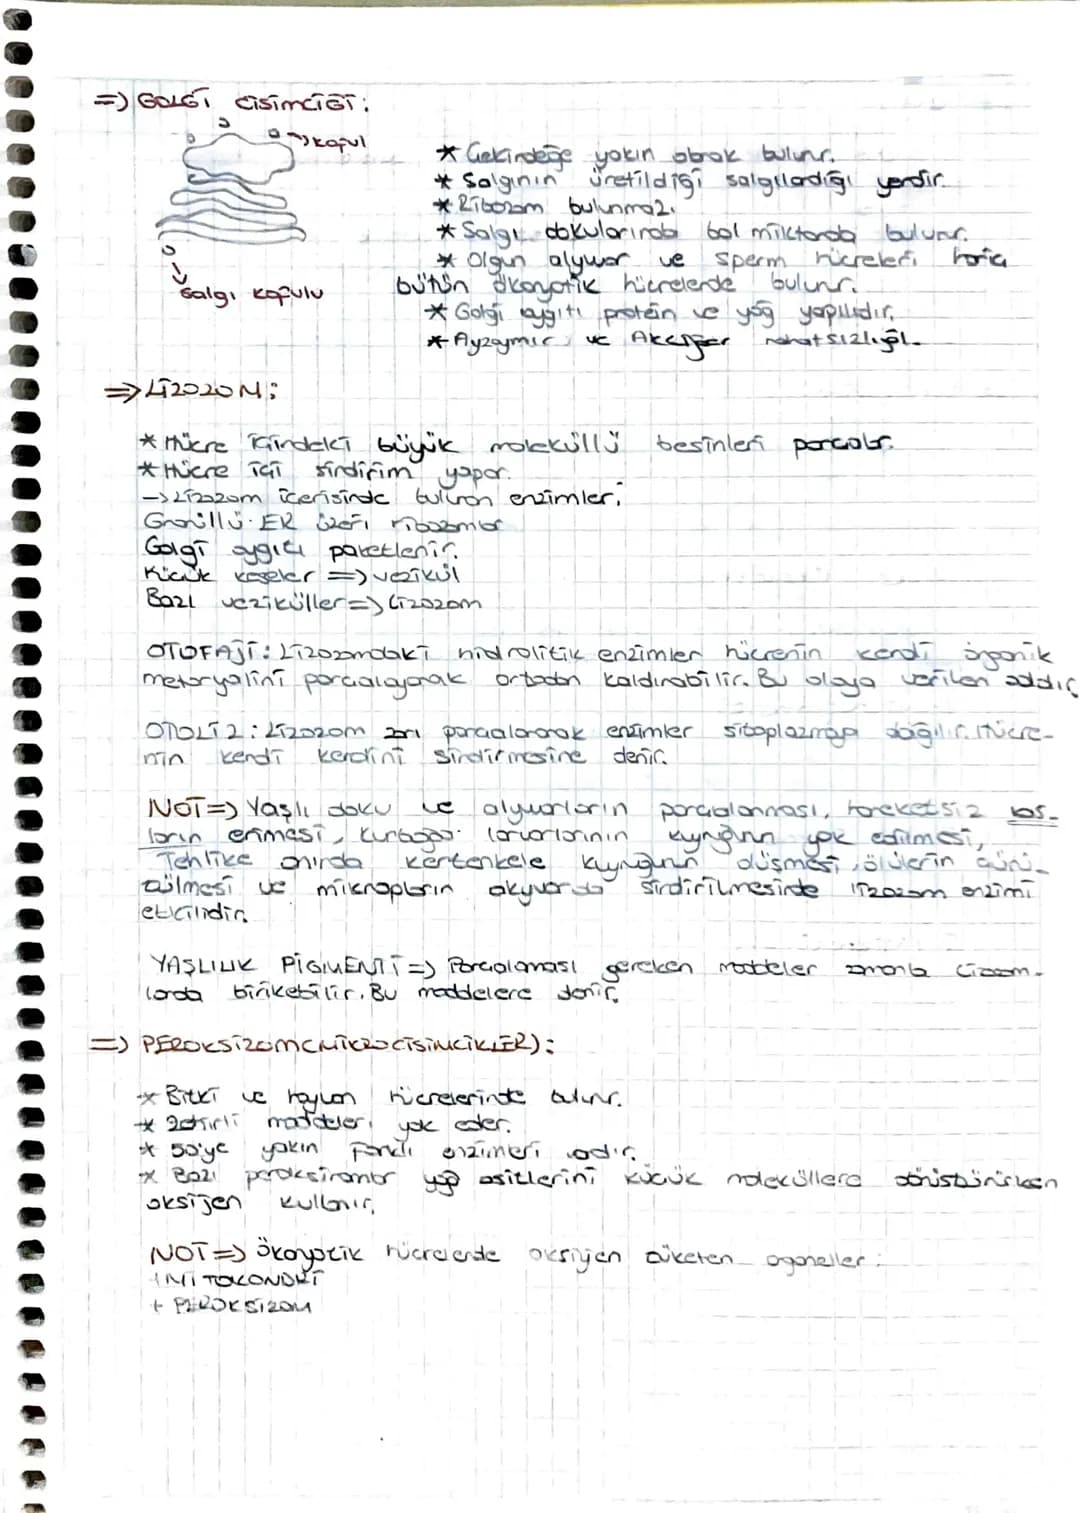 => GOLGİ CİSİMCİĞİ:
koful
* Çekirdeğe yakın olarak bulunur.
* Salgının üretildiği salgılandığı yerdir.
* Ribozom bulunmaz.
* Salgı dokularında bol miktarda bulunur.
* Olgun alyuvar ve sperm hücreleri hariç
bütün ökaryotik hücrelerde bulunur.
salgı kofulu
* Golgi aygıtı protein ve yağ yapılıdır.
* ve rahatsızlığı
=> LİZOZOM:
* Hücre içindeki büyük moleküllü besinleri parçalar.
* Hücre içi sindirim yapar.
-> Lizozom içerisinde bulunan enzimler;
Granüllü ER üzeri ribozomlar
Golgi aygıtı paketlenir.
Küçük keseler => vezikül
Bazı veziküller => Lizozom
OTOFAJİ: Lizozomdaki hidrolitik enzimler hücrenin kendi organik
materyalini parçalayarak ortadan kaldırabilir. Bu olaya verilen addır
OTOLİZ: Lizozom zarı parçalanarak enzimler sitoplazmaya dağılır. Hücre-
nin kendi kendini sindirmesine denir.
NOT => Yaşlı doku ve alyuvarların parçalanması, hareketsiz kas-
ların erimesi, kurbağa larvalarının kuyruğunun yok edilmesi,
Tehlike anında kertenkele kuyruğunun düşmesi, ölülerin çürü-
tülmesi ve mikropların akyuvarda sindirilmesinde lizozom enzimi
etkilidir.
YAŞLILIK PİGMENTİ => Parçalaması gereken maddeler zamanla lizozom-
larda birikebilir. Bu maddelere denir.
=> PEROKSİZOM (MİKROCİSİMCİKLER):
* Bitki ve hayvan hücrelerinde bulunur.
* Zehirli maddeleri yok eder.
* 50'ye yakın farklı enzimeri vardır.
* Bazı peroksizomlar yağ asitlerini küçük moleküllere dönüştürürken
oksijen kullanır.
NOT => Ökaryotik hücrelerde oksijen tüketen organeller:
+ MİTOKONDRİ
+ PEROKSİZOM